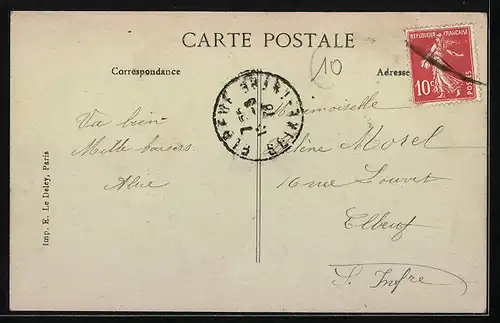 CARTE POSTALE
10
Correspondance
Adresse
REPUBLIQUE FRANÇAISE
10c
POSTES
ELBEUF
SEINE-INFRE
Mademoiselle
Va bien
Mille baisers
Morel
16 rue Louvet
Elbeuf
S. Infre
Imp. E. Le Deley, Paris